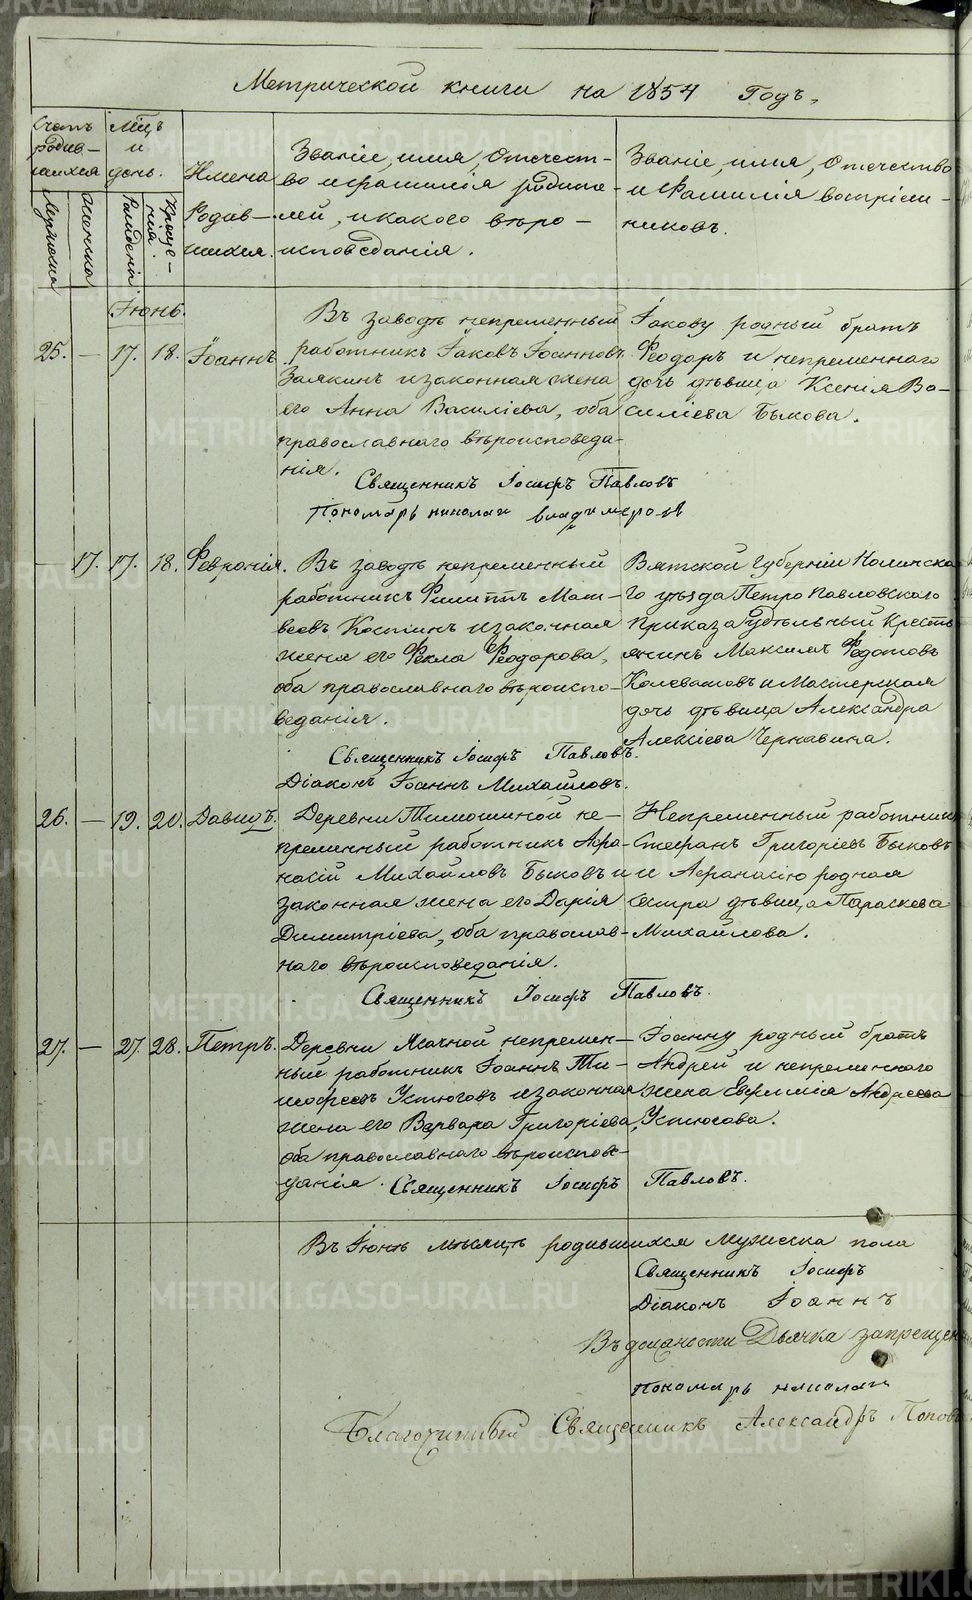 Метрической книги на 1854 Годъ,
Счетъ родив-шихся
Мужеска
Женска
Мѣцъ и день.
Рожденія
Креще-нія.
Имена Родив-шихся.
Званіе, имя, Отечест-
во и фамилія родите-
лей, и какого вѣро-
исповѣданія.
Званіе, имя, Отечество
и Фамилія воспріем-
никовъ.
Іюнь.
25. — 17. 18. Іоаннъ.
Въ заводѣ непременный
работникъ Іаковъ Іоанновъ
Заякинъ и законная жена
его Анна Василіева, оба
православнаго вѣроисповеда-
нія.
Іакову родный братъ
Феодоръ и непременнаго
дочь дѣвица Ксенія Ва-
силіева Быкова.
Священникъ Іосифъ Павловъ
Пономарь николаи владимеровъ
— 17. 17. 18. Февронія.
Въ заводѣ непременный
работникъ Филиппъ Мат-
веевъ Костинъ и законная
жена его Фекла Феодорова,
оба православнаго вѣроиспо-
веданія.
Вятской Губерніи Нолинска-
го уѣзда Петро Павловскаго
Приказа удѣльный Кресть
янинъ Максимъ Федотовъ
Колеватовъ и Мастерская
дочь дѣвица Александра
Алексіева Чернавина.
Священникъ Іосифъ Павловъ.
Діаконъ Іоаннъ Михайловъ.
26. — 19. 20. Давидъ.
Деревни Тимошиной не-
пременный работникъ Афа-
насій Михайловъ Быковъ и
законная жена его Дарія
Димитріева, оба православ-
наго вѣроисповеданія.
Непременный работникъ
Стефанъ Григоріевъ Быковъ
и Афанасію родная
сестра дѣвица Параскева
Михайлова.
Священникъ Іосифъ Павловъ.
27. — 27. 28. Петръ.
Деревни Ясачной непремен-
ный работникъ Іоаннъ Ти-
мофеевъ Устюговъ и законная
жена его Варвара Григоріева,
оба православнаго вѣроиспове-
данія.
Іоанну родный братъ
Андрей и непременнаго
жена Евфимія Андреева
Устюгова.
Священникъ Іосифъ Павловъ.
Въ Іюнѣ мѣсяцѣ родившихся Мужеска пола
Священникъ Іосифъ
Діаконъ Іоаннъ
Въ должности Дьячка запрещен
Пономарь николаи
Благочинный Священникъ Александръ Поповъ
METRIKI.GASO-URAL.RU